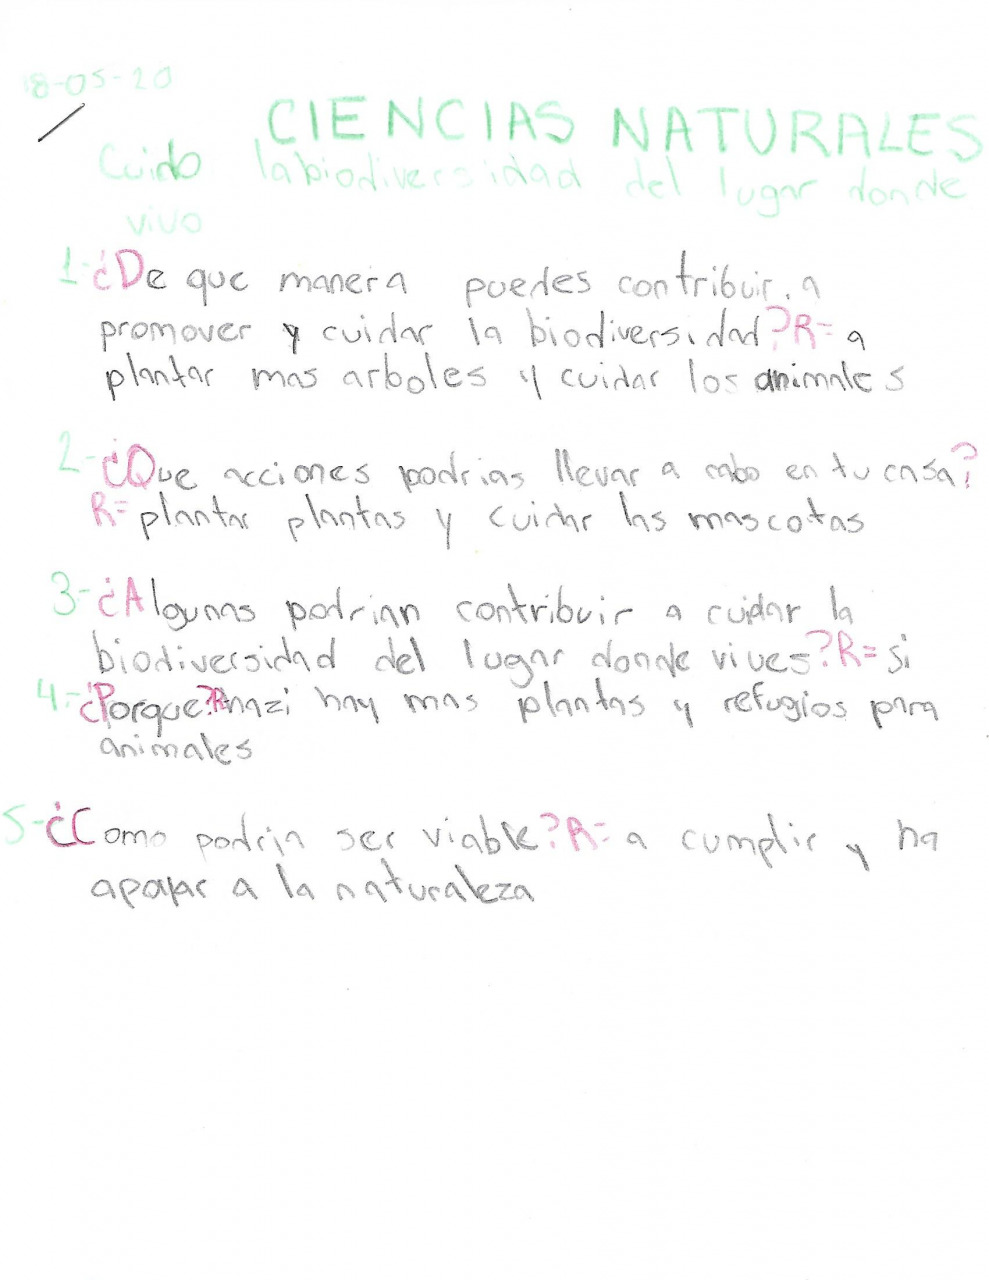 8-05-20
CIENCIAS NATURALES
Cuido la biodiversidad del lugar donde
vivo
1-¿De que manera puedes contribuir a
promover y cuidar la biodiversidad?R= a
plantar mas arboles y cuidar los animales
2-¿Que acciones podrias llevar a cabo en tu casa?
R= plantar plantas y cuidar las mascotas
3-¿Algunas podrian contribuir a cuidar la
biodiversidad del lugar donde vives?R= si
4-¿Porque?R= azi hay mas plantas y refugios para
animales
5-¿Como podria ser viable?R= a cumplir y ha
apoyar a la naturaleza